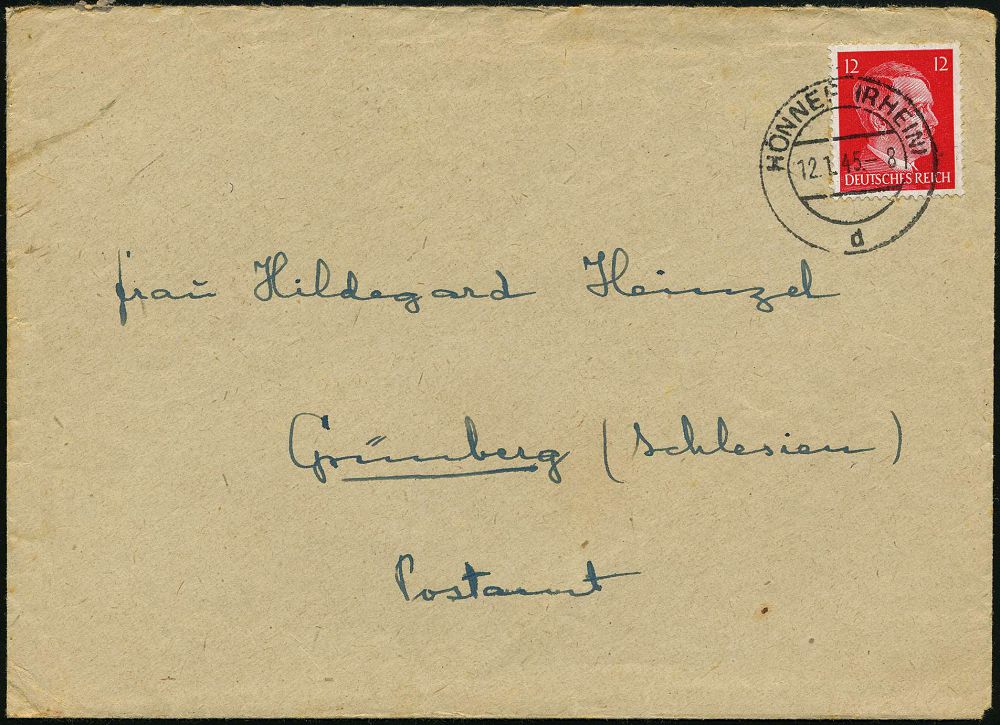 12 12
DEUTSCHES REICH
HONNEF (RHEIN)
12.1.45.- 8
d
Frau Hildegard Heinzel
Grünberg (Schlesien)
Postamt